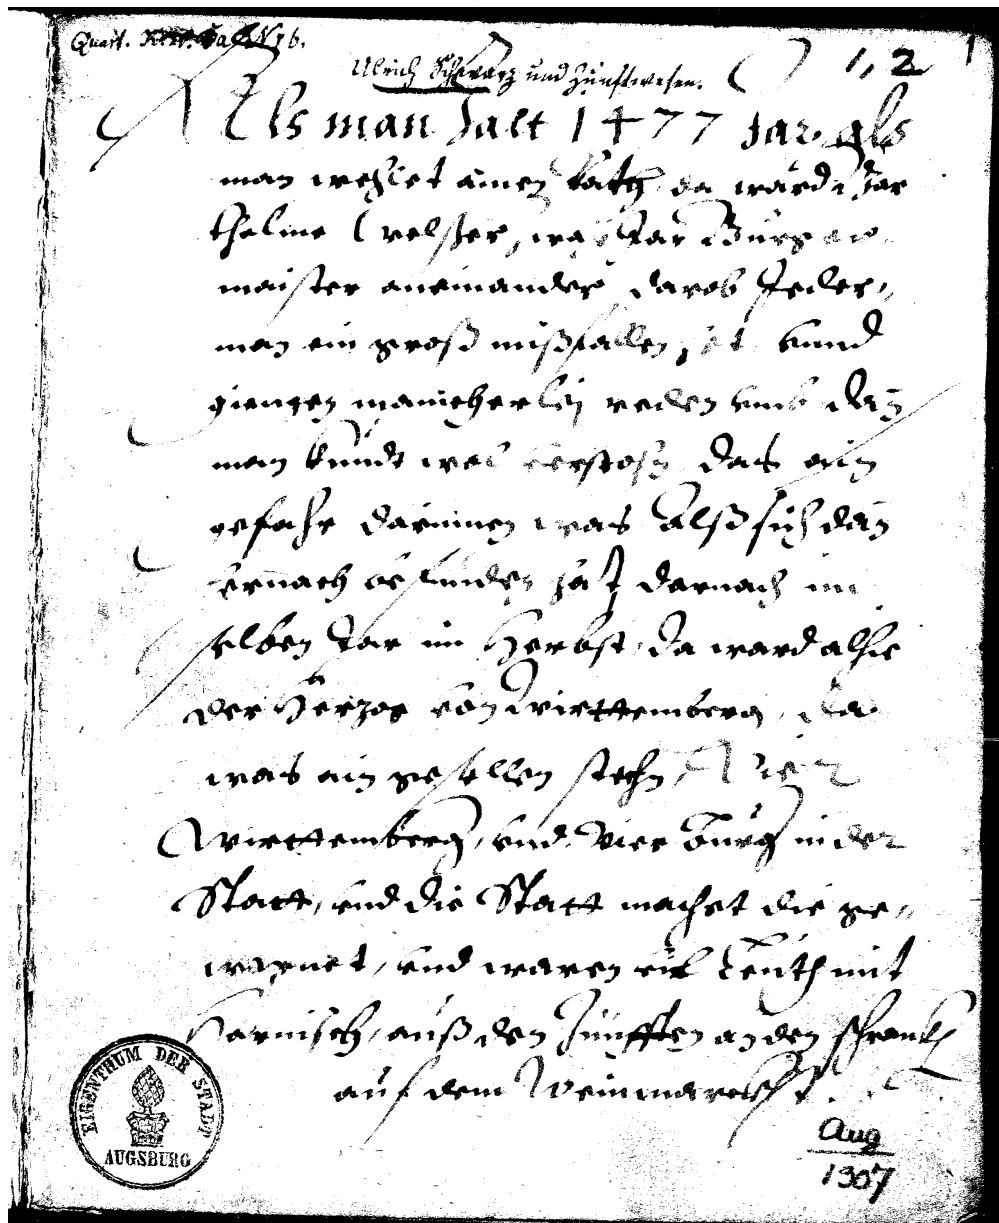 Quart.
Ulrich Schwarz und Zunftwesen.
1, 2
1
Als man zalt 1477 Jar als
man wehlet ainen Rath da ward
Burgen
maister aneinander darob Jeder-
man ein groß mißfallen hat vnnd
giengen mancherlej reden vmb dan
man kundt wol verstohn das ain
gefahr darinnen was Alß sich dan
hernach befunden hat darnach im
selben Jar im Herbst, da ward alhie
der Herzog von Wirttemberg, da
was ain gesellen stechn, Vier
Wirttemberg, vnd Vier Burg in der
Statt, vnd die Statt machet die ge-
wapnet, vnd waren vil Leuth mit
Harnisch, auß den Zünfften an den schranckh
auf dem Weinmarckht.
EIGENTHUM DER STADT
AUGSBURG
Aug
1307